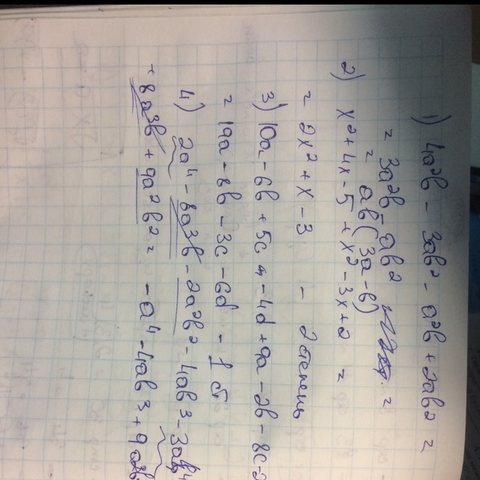 1) 4a²b - 3ab² - a²b + 2ab² =
= 3a²b - ab² =
= ab(3a - b)
2) x² + 4x - 5 + x² - 3x + 2 =
= 2x² + x - 3 - 2 степень
3) 10a - 6b + 5c - 4d + 9a - 2b - 8c - 2
= 19a - 8b - 3c - 6d - 1 ст
4) 2a⁴ - 8a³b - 2a²b² - 4ab³ - 3a⁴
+ 8a³b + 9a²b² = - a⁴ - 4ab³ + 9